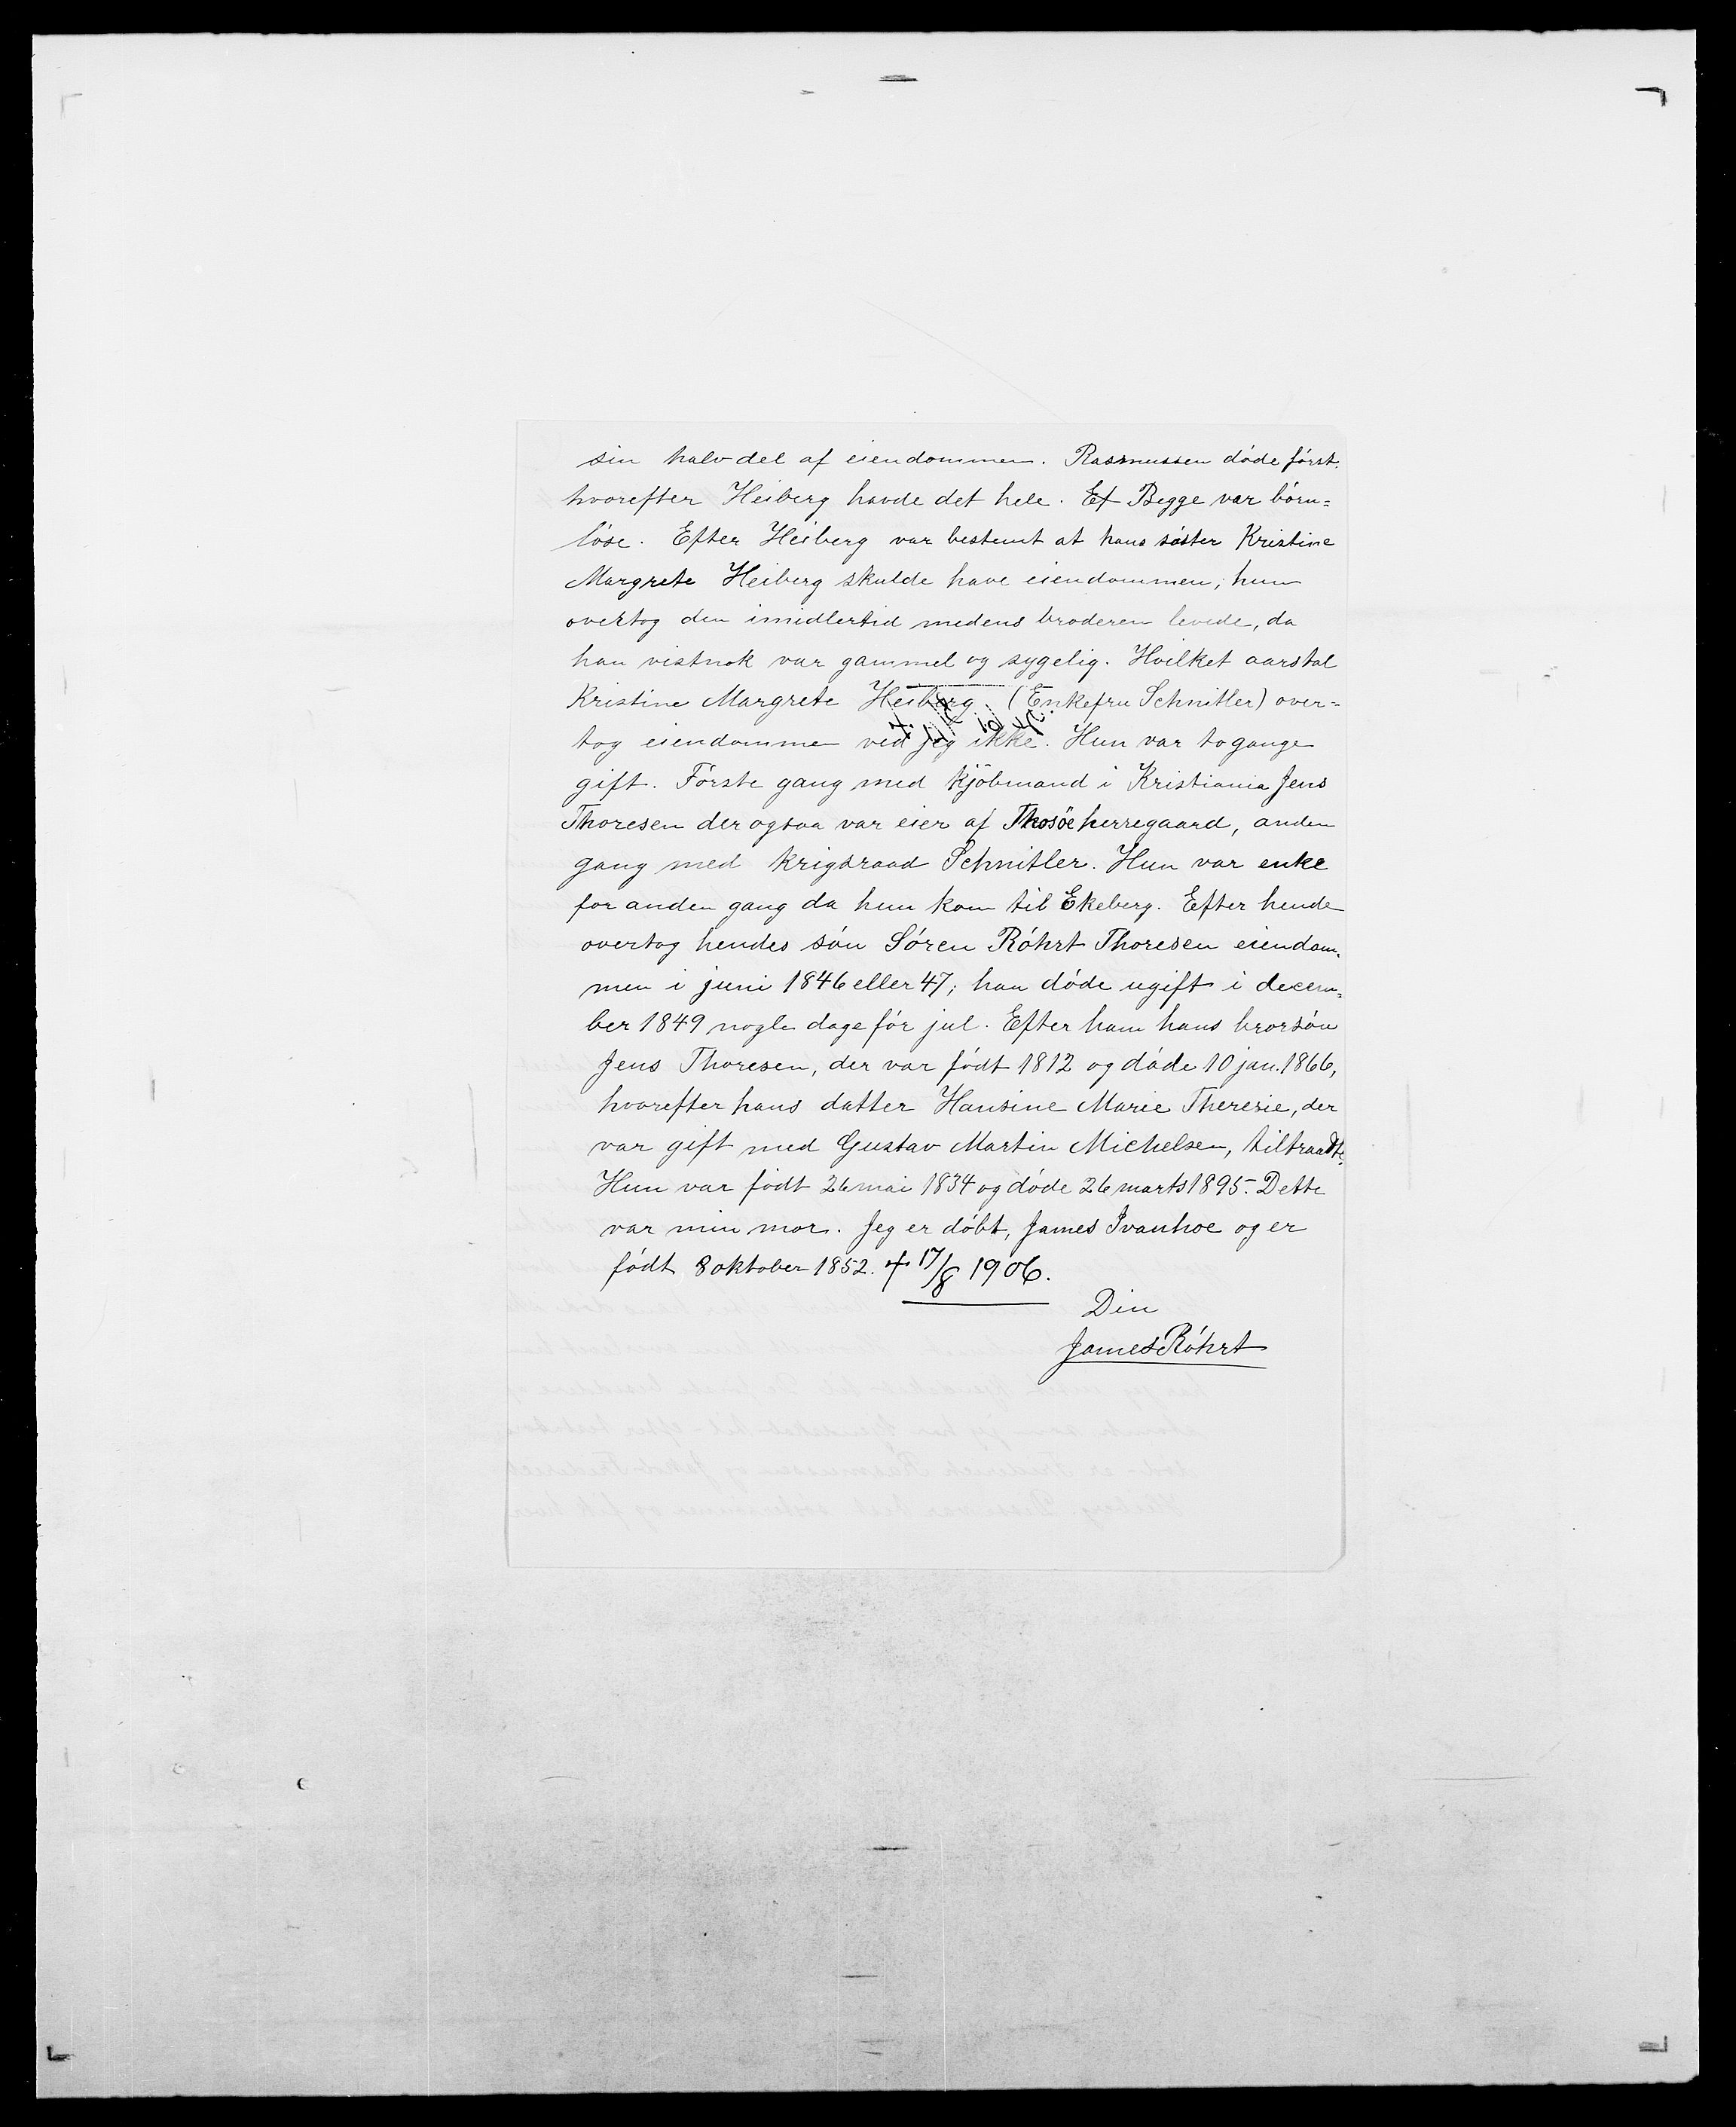 sin halvdel af eiendommen. Rasmussen døde først.
hvorefter Heiberg havde det hele. Ef Begge var børn=
løse. Efter Heiberg var bestemt at hans søster Kristine
Margrete Heiberg skulde have eiendommen; hun
overtog den imidlertid medens broderen levede, da
han vistnok var gammel og sygelig. Hvilket aarstal
Kristine Margrete Heiberg (Enkefru Schnitler) over=
tog eiendommen ved jeg ikke. Hun var to gange
gift. Første gang med kjöbmand i Kristiania Jens
Thoresen der ogsaa var eier af Thosöe herregaard, anden
gang med krigsraad Schnitler. Hun var enke
for anden gang da hun kom til Ekeberg. Efter hende
overtog hendes søn Søren Røhrt Thoresen eiendom=
men i juni 1846 eller 47; han døde ugift i decem=
ber 1849 nogle dage før jul. Efter ham hans brorsøn
Jens Thoresen, der var født 1812 og døde 10 jan. 1866,
hvorefter hans datter Hansine Marie Theresie, der
var gift med Gustav Martin Michelsen, tiltraadte.
Hun var født 26 mai 1834 og døde 26 marts 1895. Dette
var min mor. Jeg er døbt, James Ivanhoe og er
født 8 oktober 1852. † 17/8 1906.
Din
James Røhrt